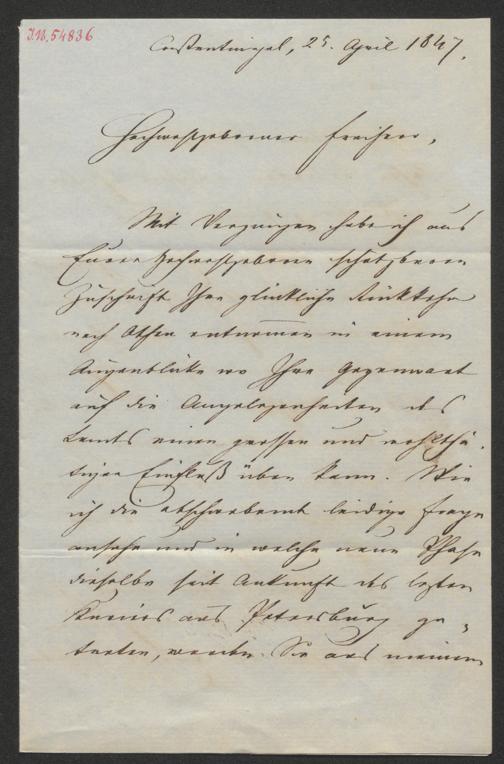 I.N. 54836
Constantinopel, 25. April 1847.
Hochwohlgeborner Freiherr,
Mit Vergnügen habe ich aus
Euerer Hochwohlgeboren schätzbaren
Zuschrift Ihre glückliche Rückkehr
nach Athen entnommen in einem
Augenblicke wo Ihre Gegenwart
auf die Angelegenheiten des
Landes einen grossen und wohlthä-
tigen Einfluß üben kann. Wie
ich die obschwebende leidige Frage
ansehe und in welche neue Phase
dieselbe seit Ankunft des lezten
Kuriers aus Petersburg ge-
treten, werden Sie aus meinem